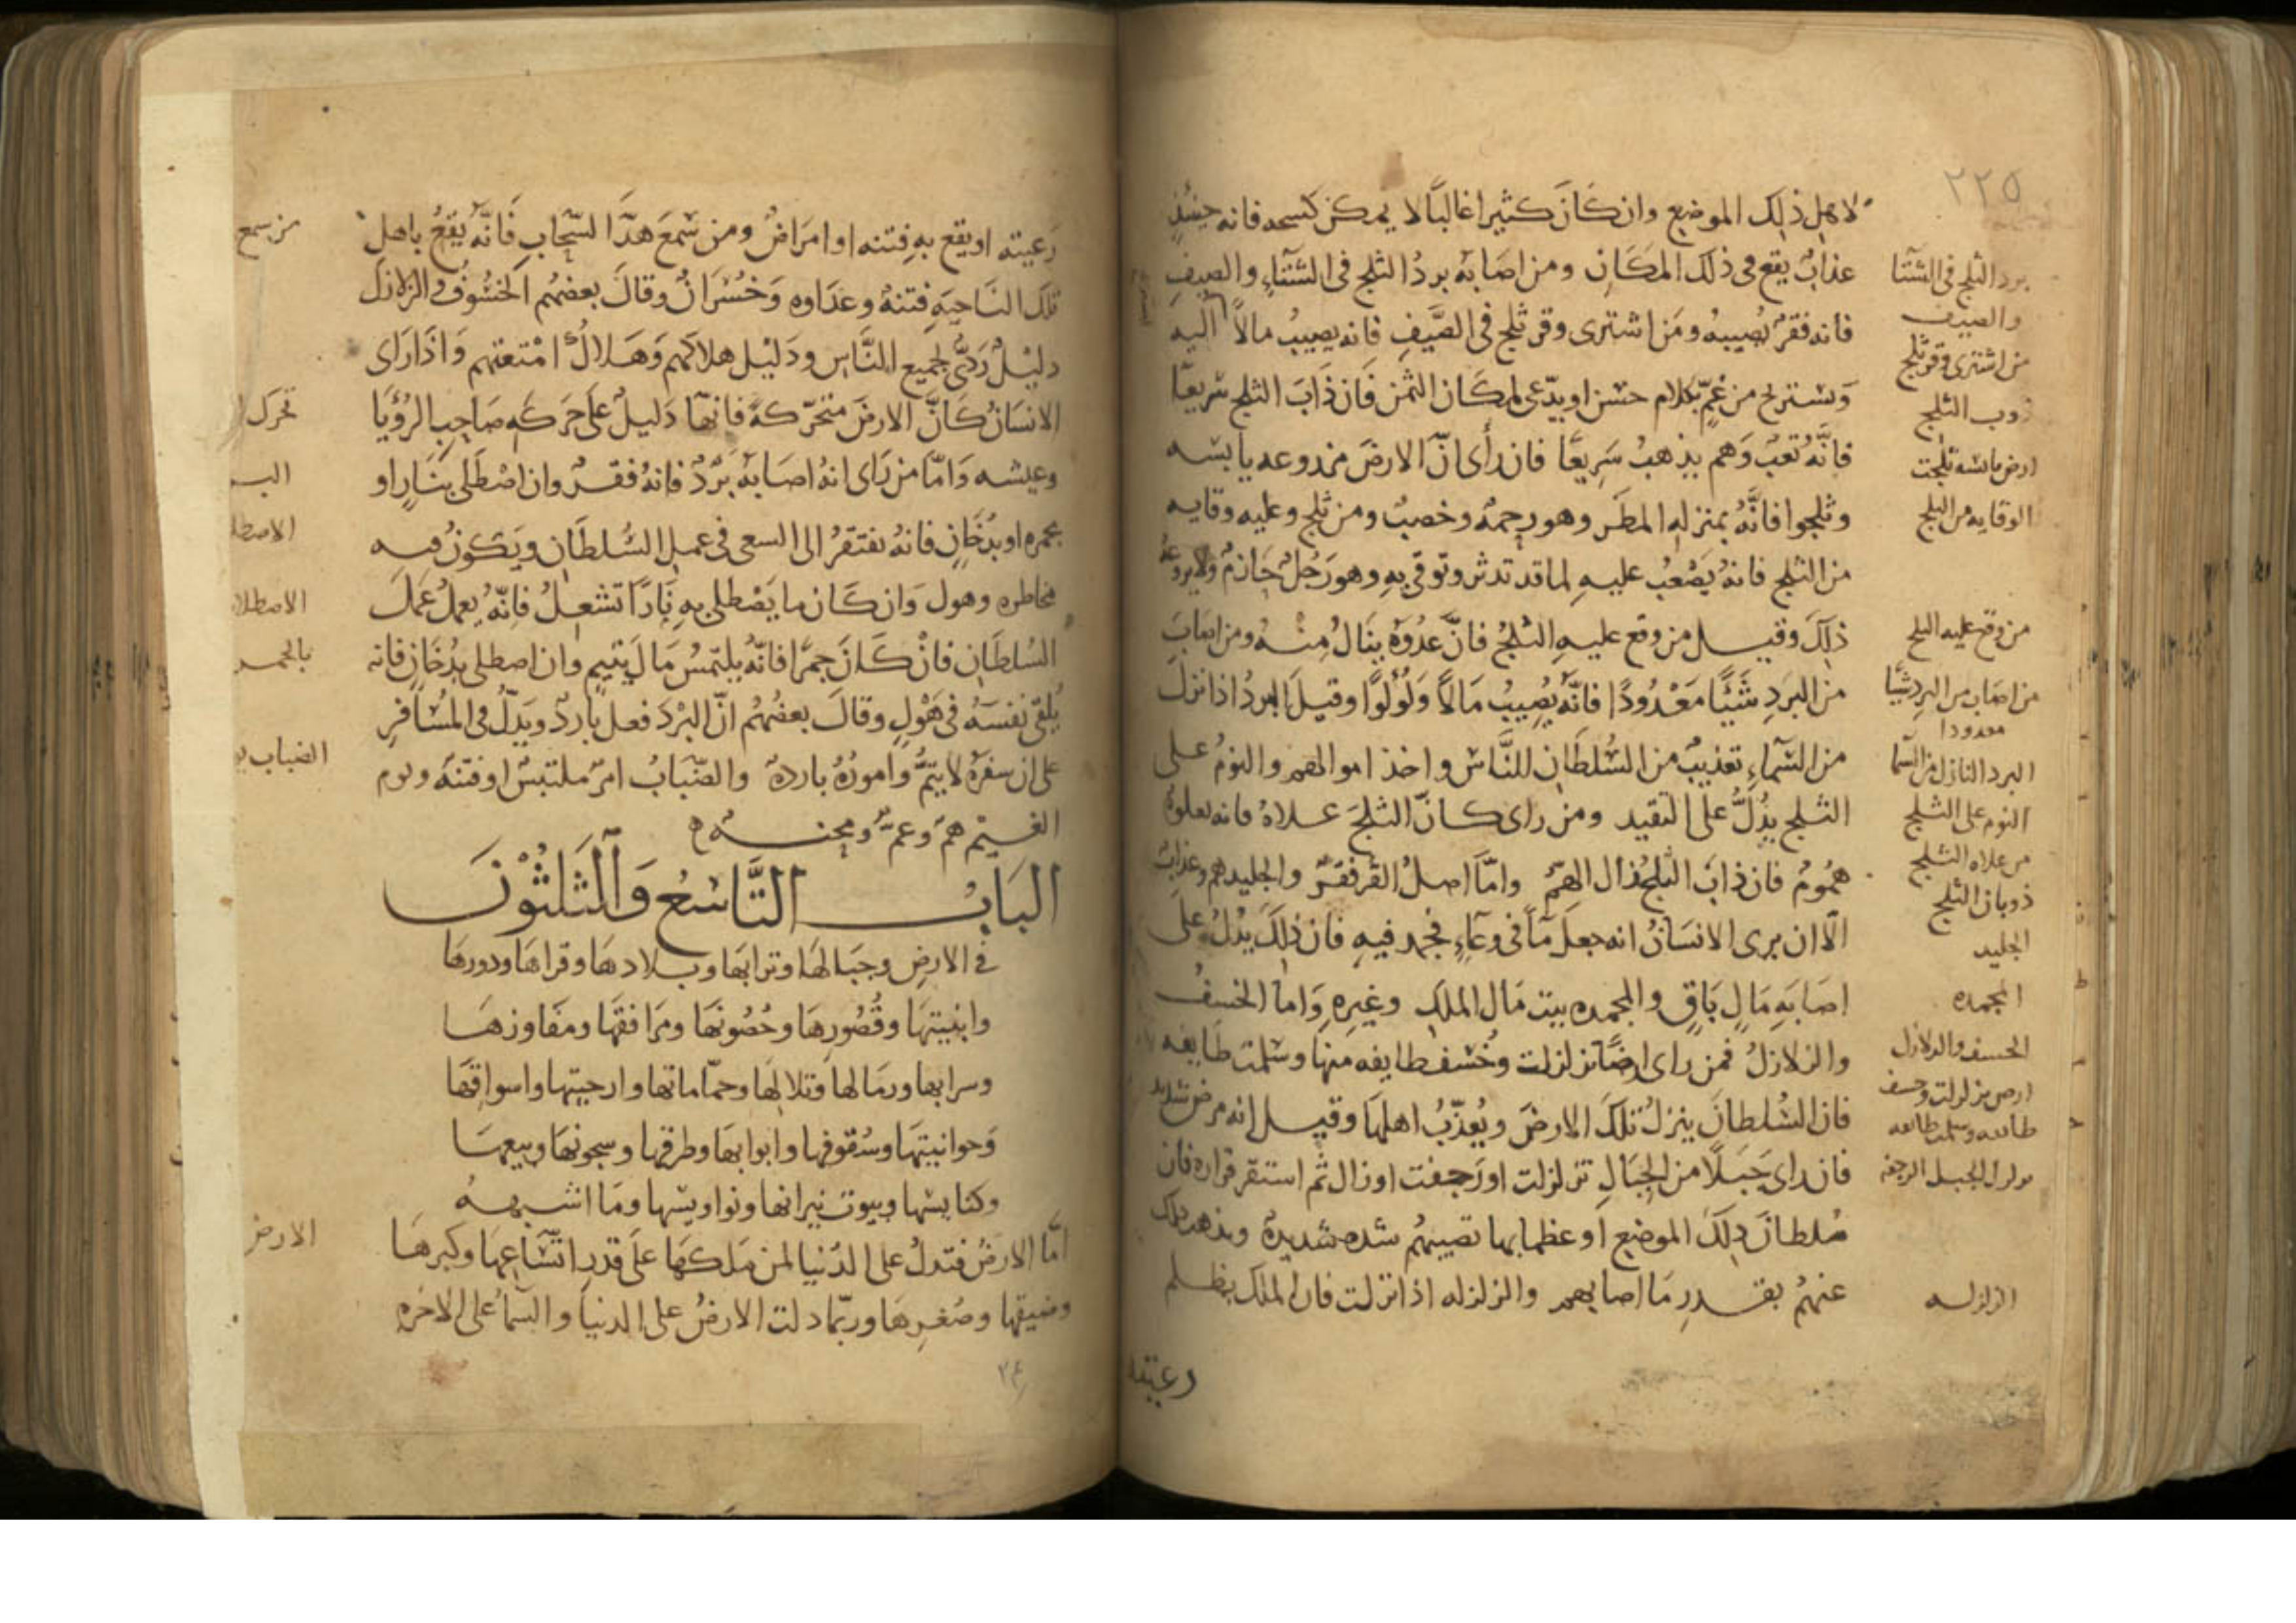 ٢٢٥
لاهل ذلك الموضع وان كان كثيرا غالبًا لا يمكن كسحه فانه حينئذٍ
عذابٌ يقع في ذلك المكان ومن اصابه بردُ الثلج في الشتاءِ والصيفِ
فانه فقرٌ يُصيبهُ ومن اشترى وقر ثلج في الصَّيفِ فانه يصيبُ مالاً اليه
وَيستريح من غمٍّ بكلام حسن او يدّعى لمكان الثمن فان ذَابَ الثلج سريعًا
فانَّهُ تعبٌ وَهم يذهبُ سَريعًا فان رأى انّ الارضَ مزدوعه يابسه
وثلجوا فانَّهُ بمنزله المطر وهو رحمةٌ وخصبٌ ومن ثلج وعليه وقايه
من الثلج فانهُ يَصْعُبُ عليهِ لما قد تدثر وتوقى بهِ وهو رَجُلٌ حَازمٌ ولا يروعهُ
ذلكَ وقيل من وقع عليهِ الثلجُ فانَّ عدُوَهُ ينَالُ مِنْهُ ومن اصابَ
من البَردِ شَيئًا مَعْدُودًا فانَّه يُصِيبُ مَالاً وَلُؤلُوًا وقيلَ البردُ اذا نزلَ
من السّماءِ تعذيبٌ من السُّلطَانِ للنَّاسِ واخذ اموالهم والنومُ على
الثلج يدُلُّ على التقيد ومن راى كانّ الثلجَ علاهُ فانه يعلوهُ
همُومٌ فان ذابَ الثلجُ ذال الهمّ وامّا اصلُ القر فقرٌ والجليد هم وعذابٌ
الّا ان يرى الانسَانُ انه جعلَ مآً في وعَآءٍ فجمد فيهِ فان ذلكَ يدُلُ على
اصَابَةِ مَالٍ بَاقٍ والمجمده بيت مَال الملكِ وغيرهِ وَاما الخسفُ
والزلازلُ فمن راى ارضًا تزلزلت وخُسف طايفه منها وسَلمت طَايفه
فان السُلطانَ ينزلُ تلكَ الارضَ ويُعذّبُ اهلهَا وقيل انه مرض شديد
فان راى جَبَلًا من الجبَالِ تزلزلت او رَجفت او زال ثم استقر قراره فان
سُلطانَ ذلكَ الموضع او عظمايها تصيبهُم شده شديدةٌ ويذهب ذلك
عنهُم بقدرِ مَا اصابهم والزلزله اذا نزلت فان الملك يظلم
رعيته
برد الثلج في الشتا
والصيف
من اشترى وقر ثلج
ذوب الثلج
ارض يابسه ثلجت
الوقايه من الثلج
من وقع عليه الثلج
من اصاب من البرد شيًا
معدودا
البرد النازل من السما
النوم على الثلج
من علاه الثلج
ذوبان الثلج
الجليد
المجمده
الخسف والزلازل
ارض تزلزلت وخسف
طايفه وسلمت طايفه
تزلزل الجبل الرجفه
الزلزله
رَعيته او يقع بهِ فِتنه او امرَاضٌ ومن سَمعَ هدَّا لسّحابِ فَانَّهُ يَقعُ باهل
تلكَ النَاحيَهِ فتنةٌ وعدَاوه وَخُسْرَانٌ وقالَ بعضهُم الخسُوفُ والزلازل
دليْلٌ رَدِّى لجميع النَّاسِ ودَليْل هلاكهم وَهَلاكُ امْتعتهم وَاذَا رَاى
الانسَانُ كَانَّ الارضَ متحَرّكةً فانهّا دَليلٌ علَى حَركهِ صَاحِب الرُؤيَا
وعيشه وَامّا من رَاى انهُ اصَابَهُ بَرْدٌ فانهُ فقرٌ وان اصْطَلى بنَارٍ او
بجمره او بدُخَانٍ فانهُ يفتقرُ الى السعى في عمل السُلطَانِ ويَكونُ فيهِ
مخاطره وهول وَان كَان ما يَصْطلى بهِ نَارًا تشعلُ فانّهُ يَعملُ عَمَلَ
السُلطَانِ فانْ كَانَ جمرًا فانّهُ يلتمسُ مَالَ يَتيمٍ وان اصطلى بدُخَانٍ فانه
يُلقى نفسَهُ في هَوْلٍ وقالَ بعضُهُم انّ البرْدَ فعل باردٌ ويَدلُّ في المسَافِرِ
على ان سفرَهُ لا يَتمُّ وامورُهُ باردةٌ والضّبَابُ امرٌ ملتبسٌ او فتنَةٌ ويوم
الغيْم همٌّ وَغمٌّ ومحنه
البَابُ التَّاسعُ وَالثَلَثُوْنَ
في الارضِ وجبَالهَا وترابهَا وبلادهَا وقراهَا ودورهَا
وابنيتهَا وقُصُورِهَا وحُصُونهَا ومرَافقهَا ومفَاوزهَا
وسرابها ورمَالها وتلالهَا وحمّاماتها وارحيتها واسواقهَا
وَحوانيتهَا وسُقوفها وابوابهَا وطرقها وسجونهَا وبيعهَا
وكنايسها وبيوت نيرانها ونواويسها ومَا اشبههُ
امَّا الارضُ فتدلُ على الدُنيا لمن مَلكهَا علَى قدرِ اتسَاعِهَا وكبرهَا
وضيقها وصُغرِهَا وربّما دلت الارضُ على الدنيا والسماُ على الاخره
من سمع
تحرك
الاصطلا
الارض